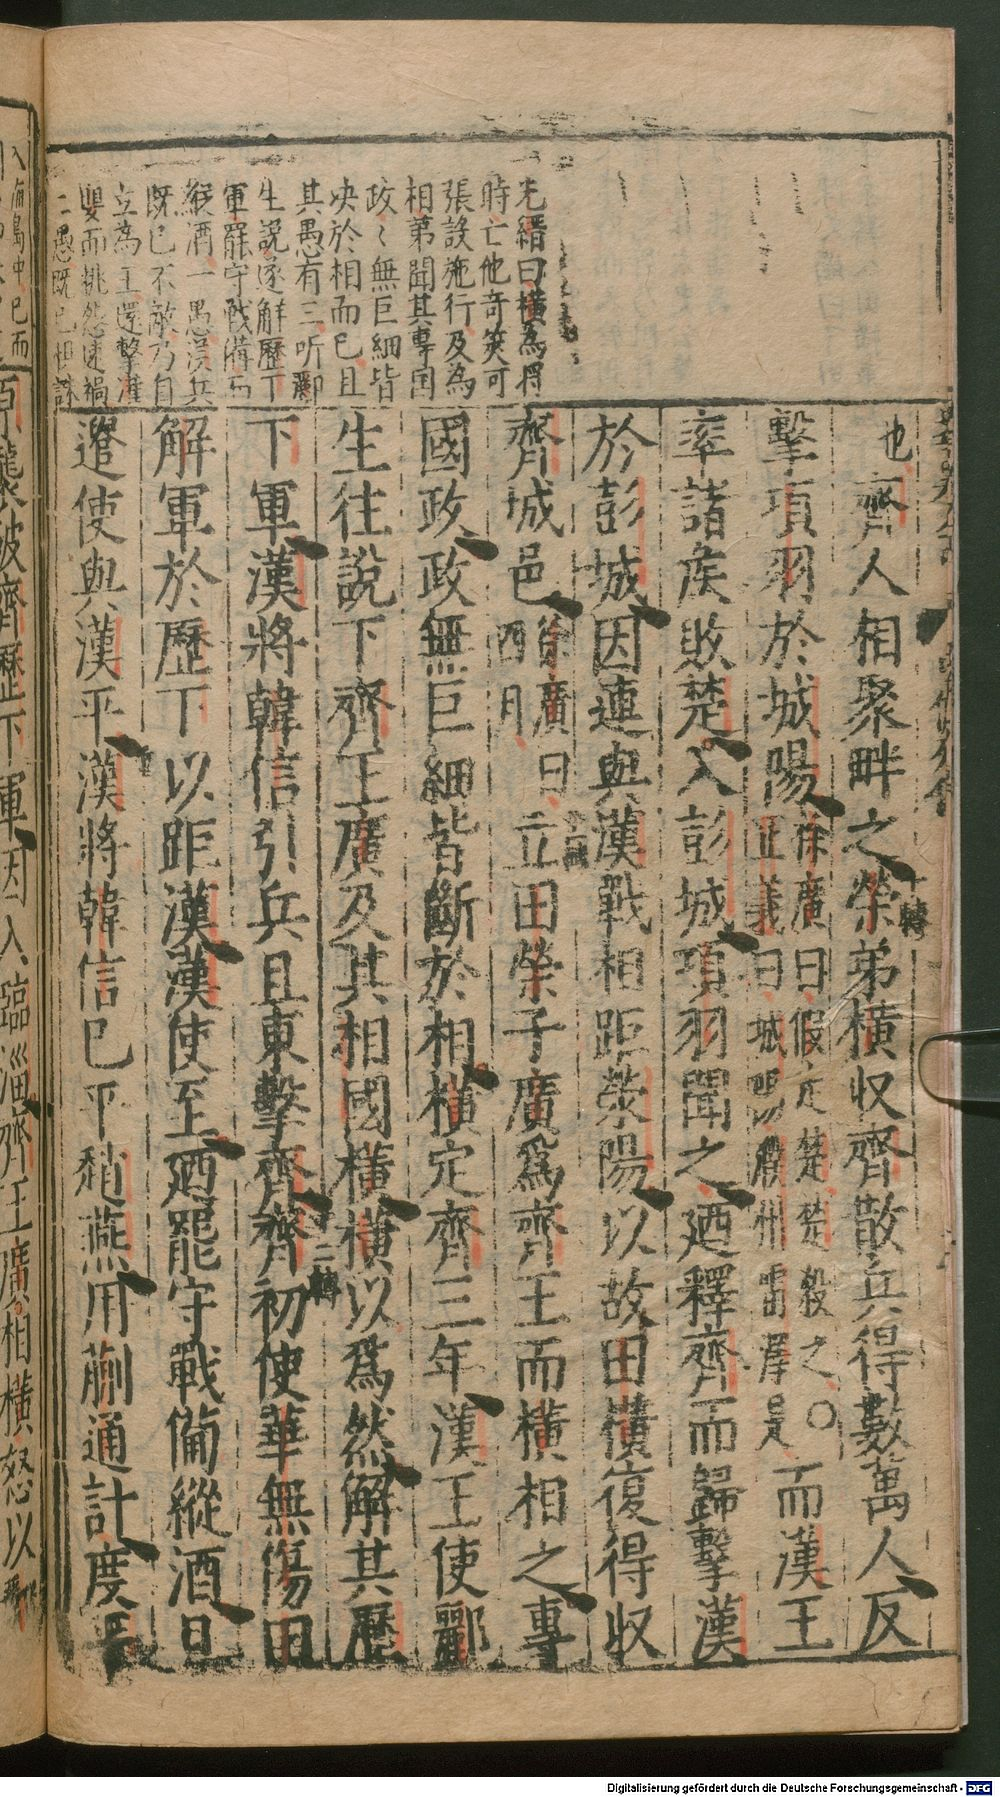 光縉曰橫為將
時亡他奇筴可
張設施行及為
相弟聞其專国
政〻無巨細皆
决於相而已且
其愚有三听酈
生說遂解歷下
軍罷守戰備而
縱酒一愚漢兵
既已不敵乃自
立為王還擊灌
嬰而挑怨速禍
二愚既已相誅
也齊人相聚畔之榮弟橫収齊散兵得數萬人反
十轉
擊項羽於城陽徐廣曰假走楚楚殺之○正義曰城陽濮州雷澤是而漢王
率諸侯敗楚入彭城項羽聞之廼釋齊而歸擊漢
於彭城因連與漢戰相距滎陽以故田橫復得収
齊城邑徐廣曰四月立田榮子廣爲齊王而橫相之專
國政政無巨細皆斷於相橫定齊三年漢王使酈
生往說下齊王廣及其相國橫橫以爲然解其歷
下軍漢將韓信引兵且東擊齊齊初使華無傷田
十二轉
解軍於歷下以距漢漢使至廼罷守戰備縱酒且
遣使與漢平漢將韓信已平趙燕用蒯通計度平
入海島中已而
原襲破齊歷下軍因入臨淄齊王廣相橫怒以
Digitalisierung gefördert durch die Deutsche Forschungsgemeinschaft - DFG